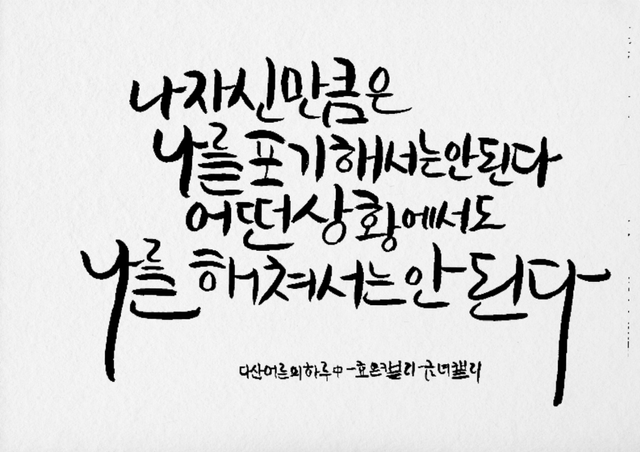 나 자신만큼은
나를 포기해서는 안된다
어떤 상황에서도
나를 해쳐서는 안된다
다산어른의하루中